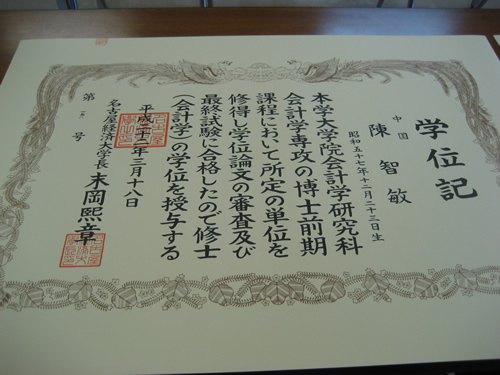 学位記
中国
陳智敏
昭和五十七年十二月二十三日生
本学大学院会計学研究科
会計学専攻の博士前期
課程において所定の単位を
修得し学位論文の審査及び
最終試験に合格したので修士
(会計学)の学位を授与する
平成二十二年三月十八日
名古屋経済大学長 末岡熙章
第 号